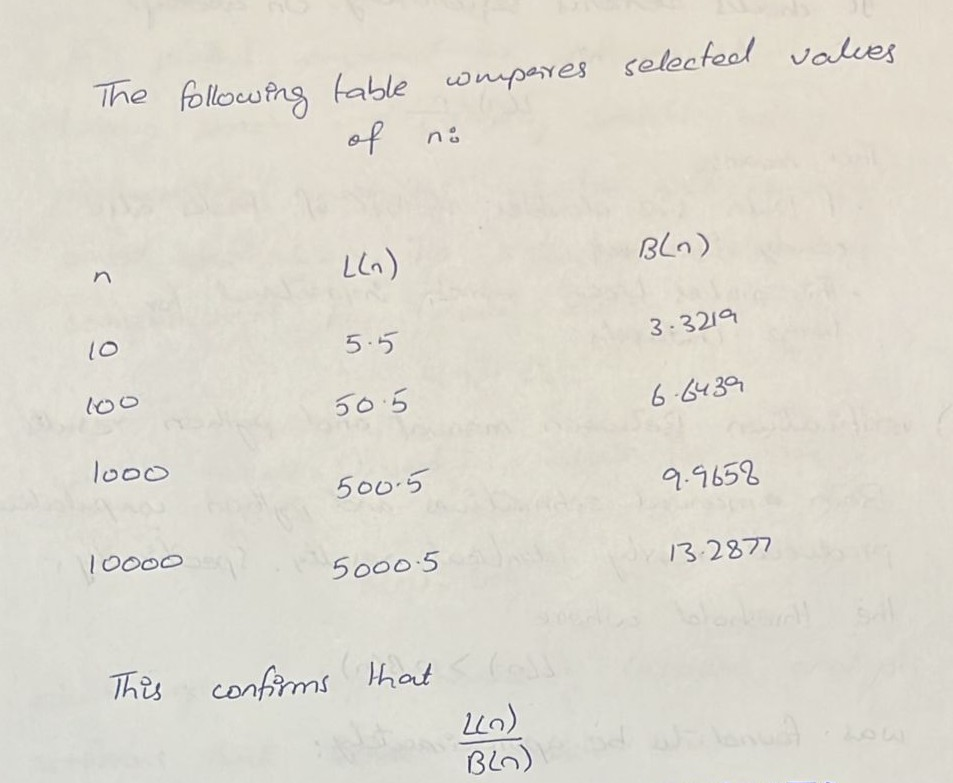 The following table compares selected values
of n:
n L(n) B(n)
10 5.5 3.3219
100 50.5 6.6439
1000 500.5 9.9658
10000 5000.5 13.2877
This confirms that
L(n)
B(n)